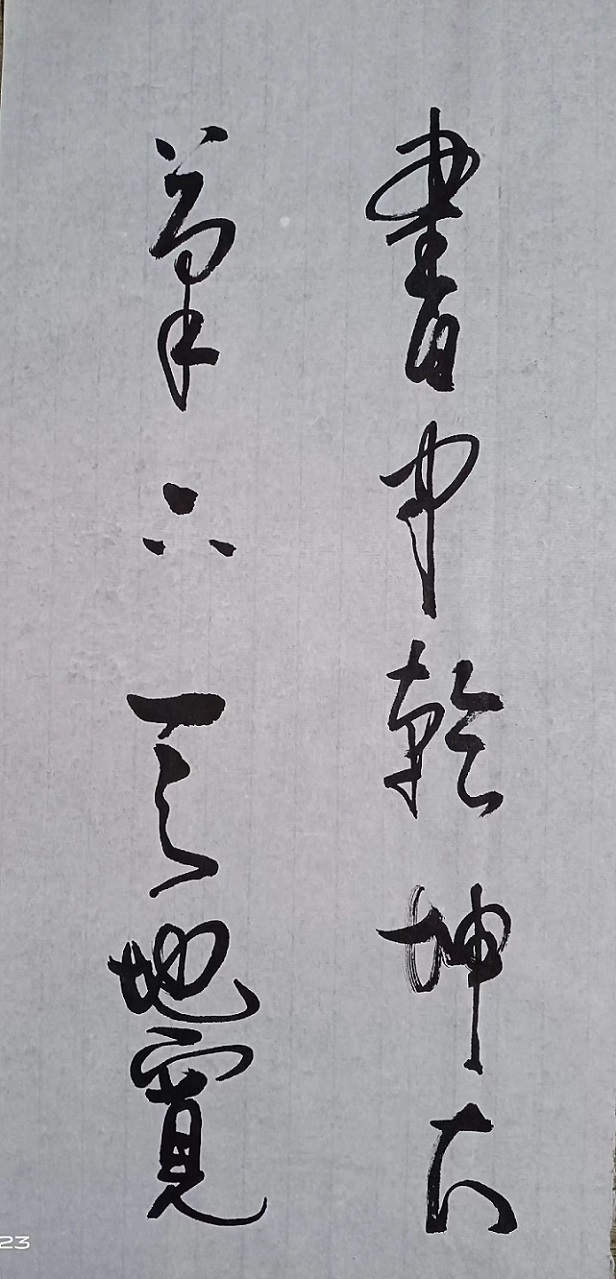 書中乾坤大
筆下天地寬
23